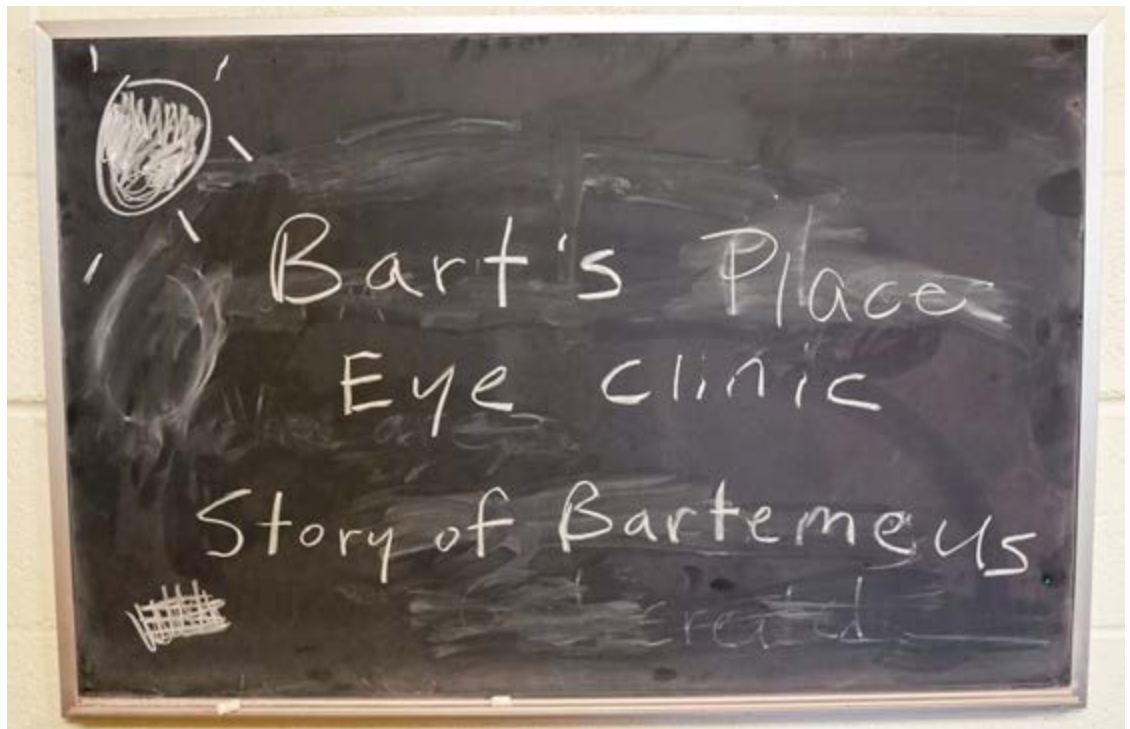 Bart's Place
Eye clinic
Story of Bartemeus